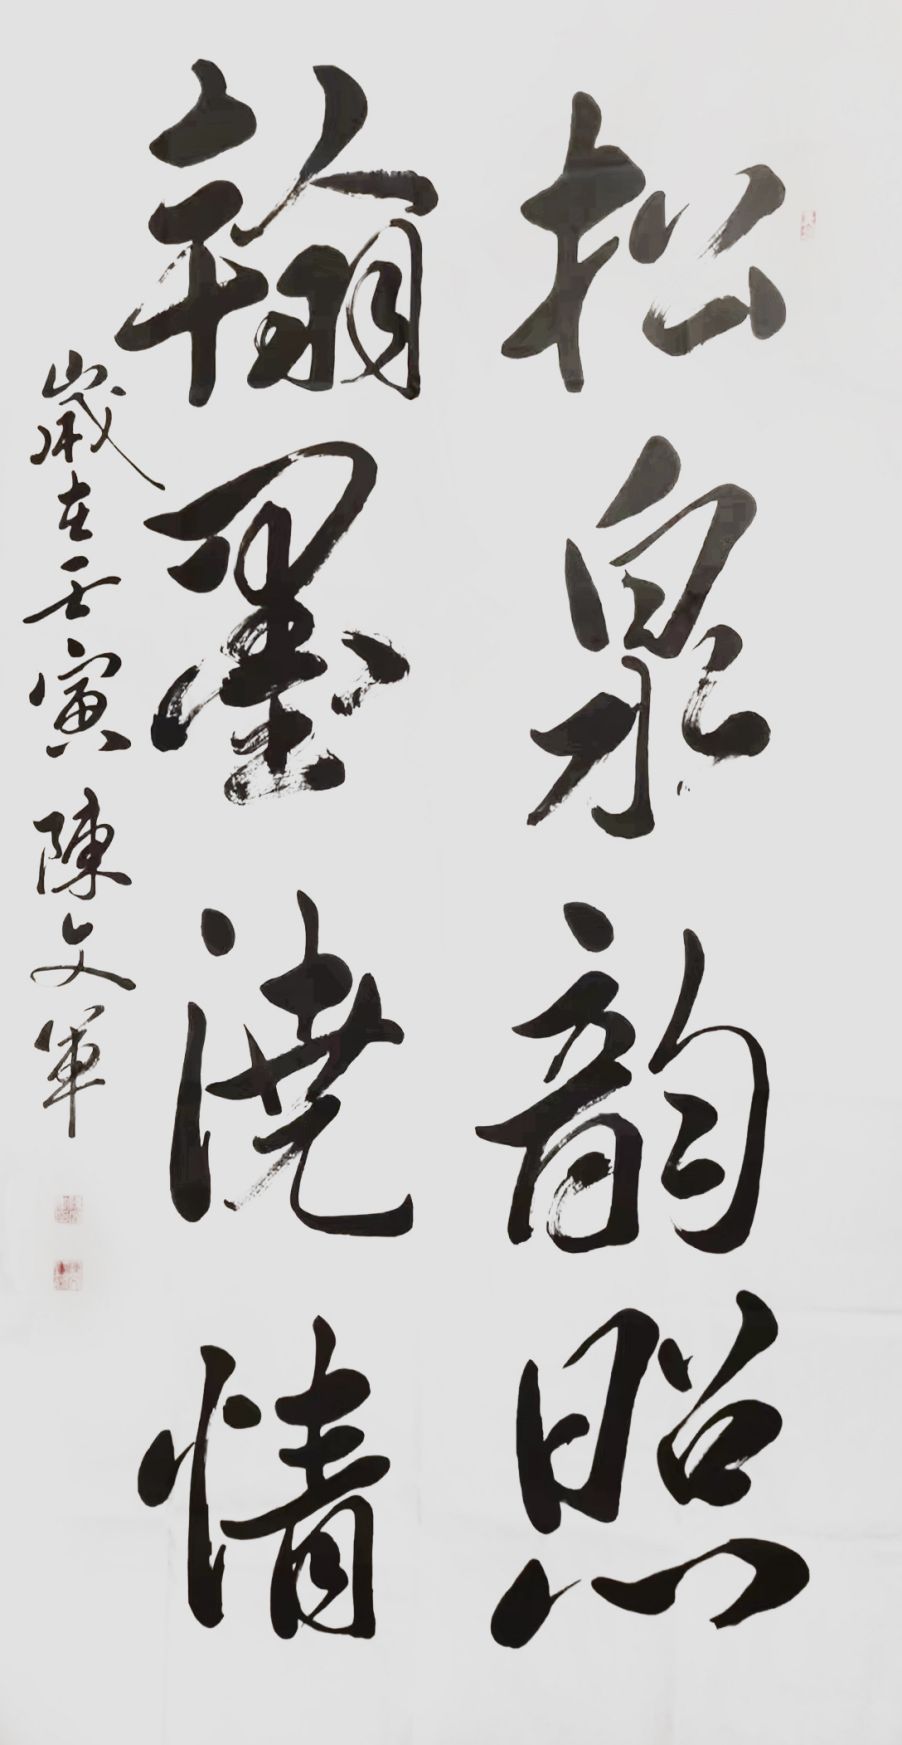 松泉韵照
翰墨浇情
歲在壬寅 陳文軍